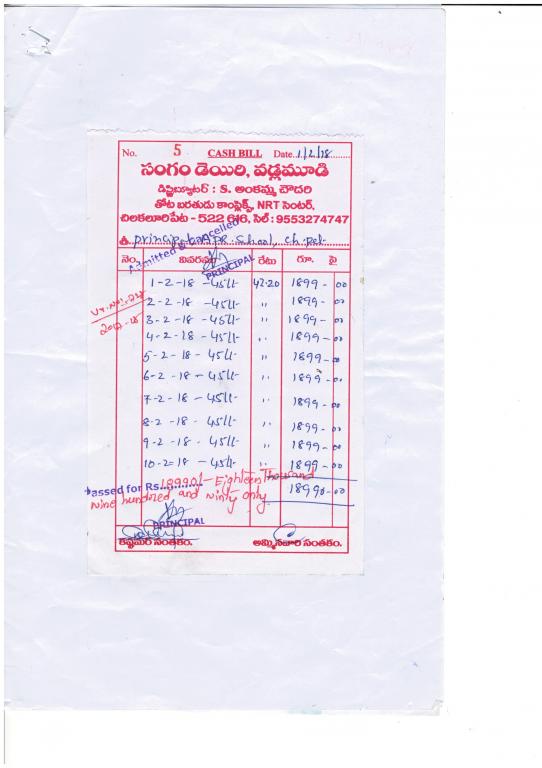 No. 5 CASH BILL Date. 1/2/18
సంగం డెయిరి, వడ్లమూడి
డిస్ట్రిబ్యూటర్ : S. అంకమ్మ చౌదరి
తోట బరతుడు కాంప్లెక్స్, NRT సెంటర్,
చిలకలూరిపేట - 522 616, సెల్ : 9553274747
శ్రీ principal School, ch.pet
Admitted & Cancelled
PRINCIPAL
నెం. వివరము రేటు రూ. పై
1-2-18 - 45lt- 42.20 1899-00
2-2-18 - 45lt- " 1899-00
3-2-18 - 45lt- " 1899-00
4-2-18 - 45lt- " 1899-00
5-2-18 - 45lt- " 1899-00
6-2-18 - 45lt- " 1899-00
7-2-18 - 45lt- " 1899-00
8-2-18 - 45lt- " 1899-00
9-2-18 - 45lt- " 1899-00
10-2-18 - 45lt- " 1899-00
18990-00
Passed for Rs. 18990/- Eighteen Thousand
Nine hundred and Ninty only
PRINCIPAL
కస్టమర్ సంతకం. అమ్మినవారి సంతకం.